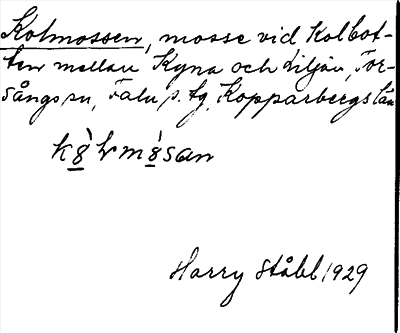 Kolmossen, mosse vid Kolbot-
ten mellan Kyna och Liljan, Tor-
sångs sn, Falu s. tg. Kopparbergs län
Harry Ståbl 1929